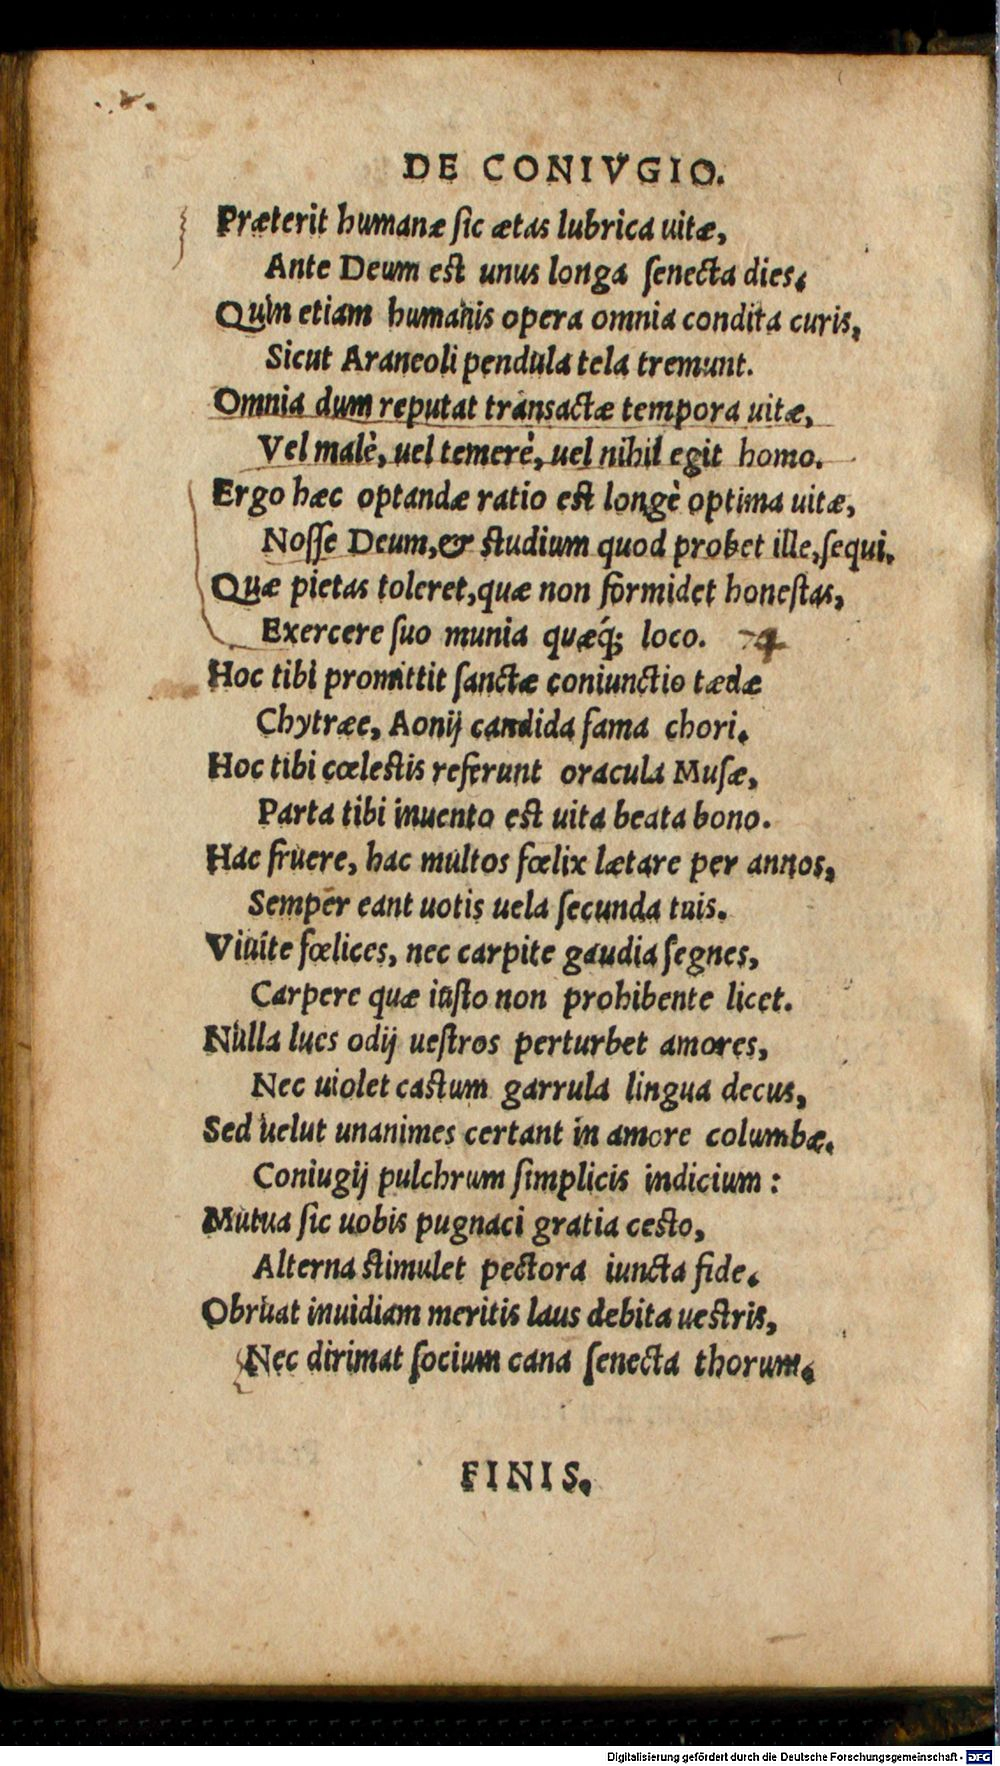 DE CONIVGIO.
Præterit humanæ ſic ætas lubrica uitæ,
Ante Deum est unus longa ſenecta dies.
Quin etiam humanis opera omnia condita curis,
Sicut Araneoli pendula tela tremunt.
Omnia dum reputat transactæ tempora uitæ,
Vel malè, uel temerè, uel nihil egit homo.
Ergo hæc optandæ ratio est longè optima uitæ,
Noſſe Deum, & studium quod probet ille, ſequi.
Quæ pietas toleret, quæ non formidet honeſtas,
Exercere ſuo munia quæq́; loco. 74
Hoc tibi promittit ſanctæ coniunctio tædæ
Chytræe, Aonij candida fama chori.
Hoc tibi cœlestis referunt oracula Muſæ,
Parta tibi inuento est uita beata bono.
Hac fruere, hac multos fœlix lætare per annos,
Semper eant uotis uela ſecunda tuis.
Viuite fœlices, nec carpite gaudia ſegnes,
Carpere quæ iuſto non prohibente licet.
Nulla lues odij ueſtros perturbet amores,
Nec uiolet castum garrula lingua decus,
Sed uelut unanimes certant in amore columbæ.
Coniugij pulchrum ſimplicis indicium:
Mutua ſic uobis pugnaci gratia cesto,
Alterna stimulet pectora iuncta fide.
Obruat inuidiam meritis laus debita uestris,
Nec dirimat ſocium cana ſenecta thorum.
FINIS.
Digitalisierung gefördert durch die Deutsche Forschungsgemeinschaft - DFG